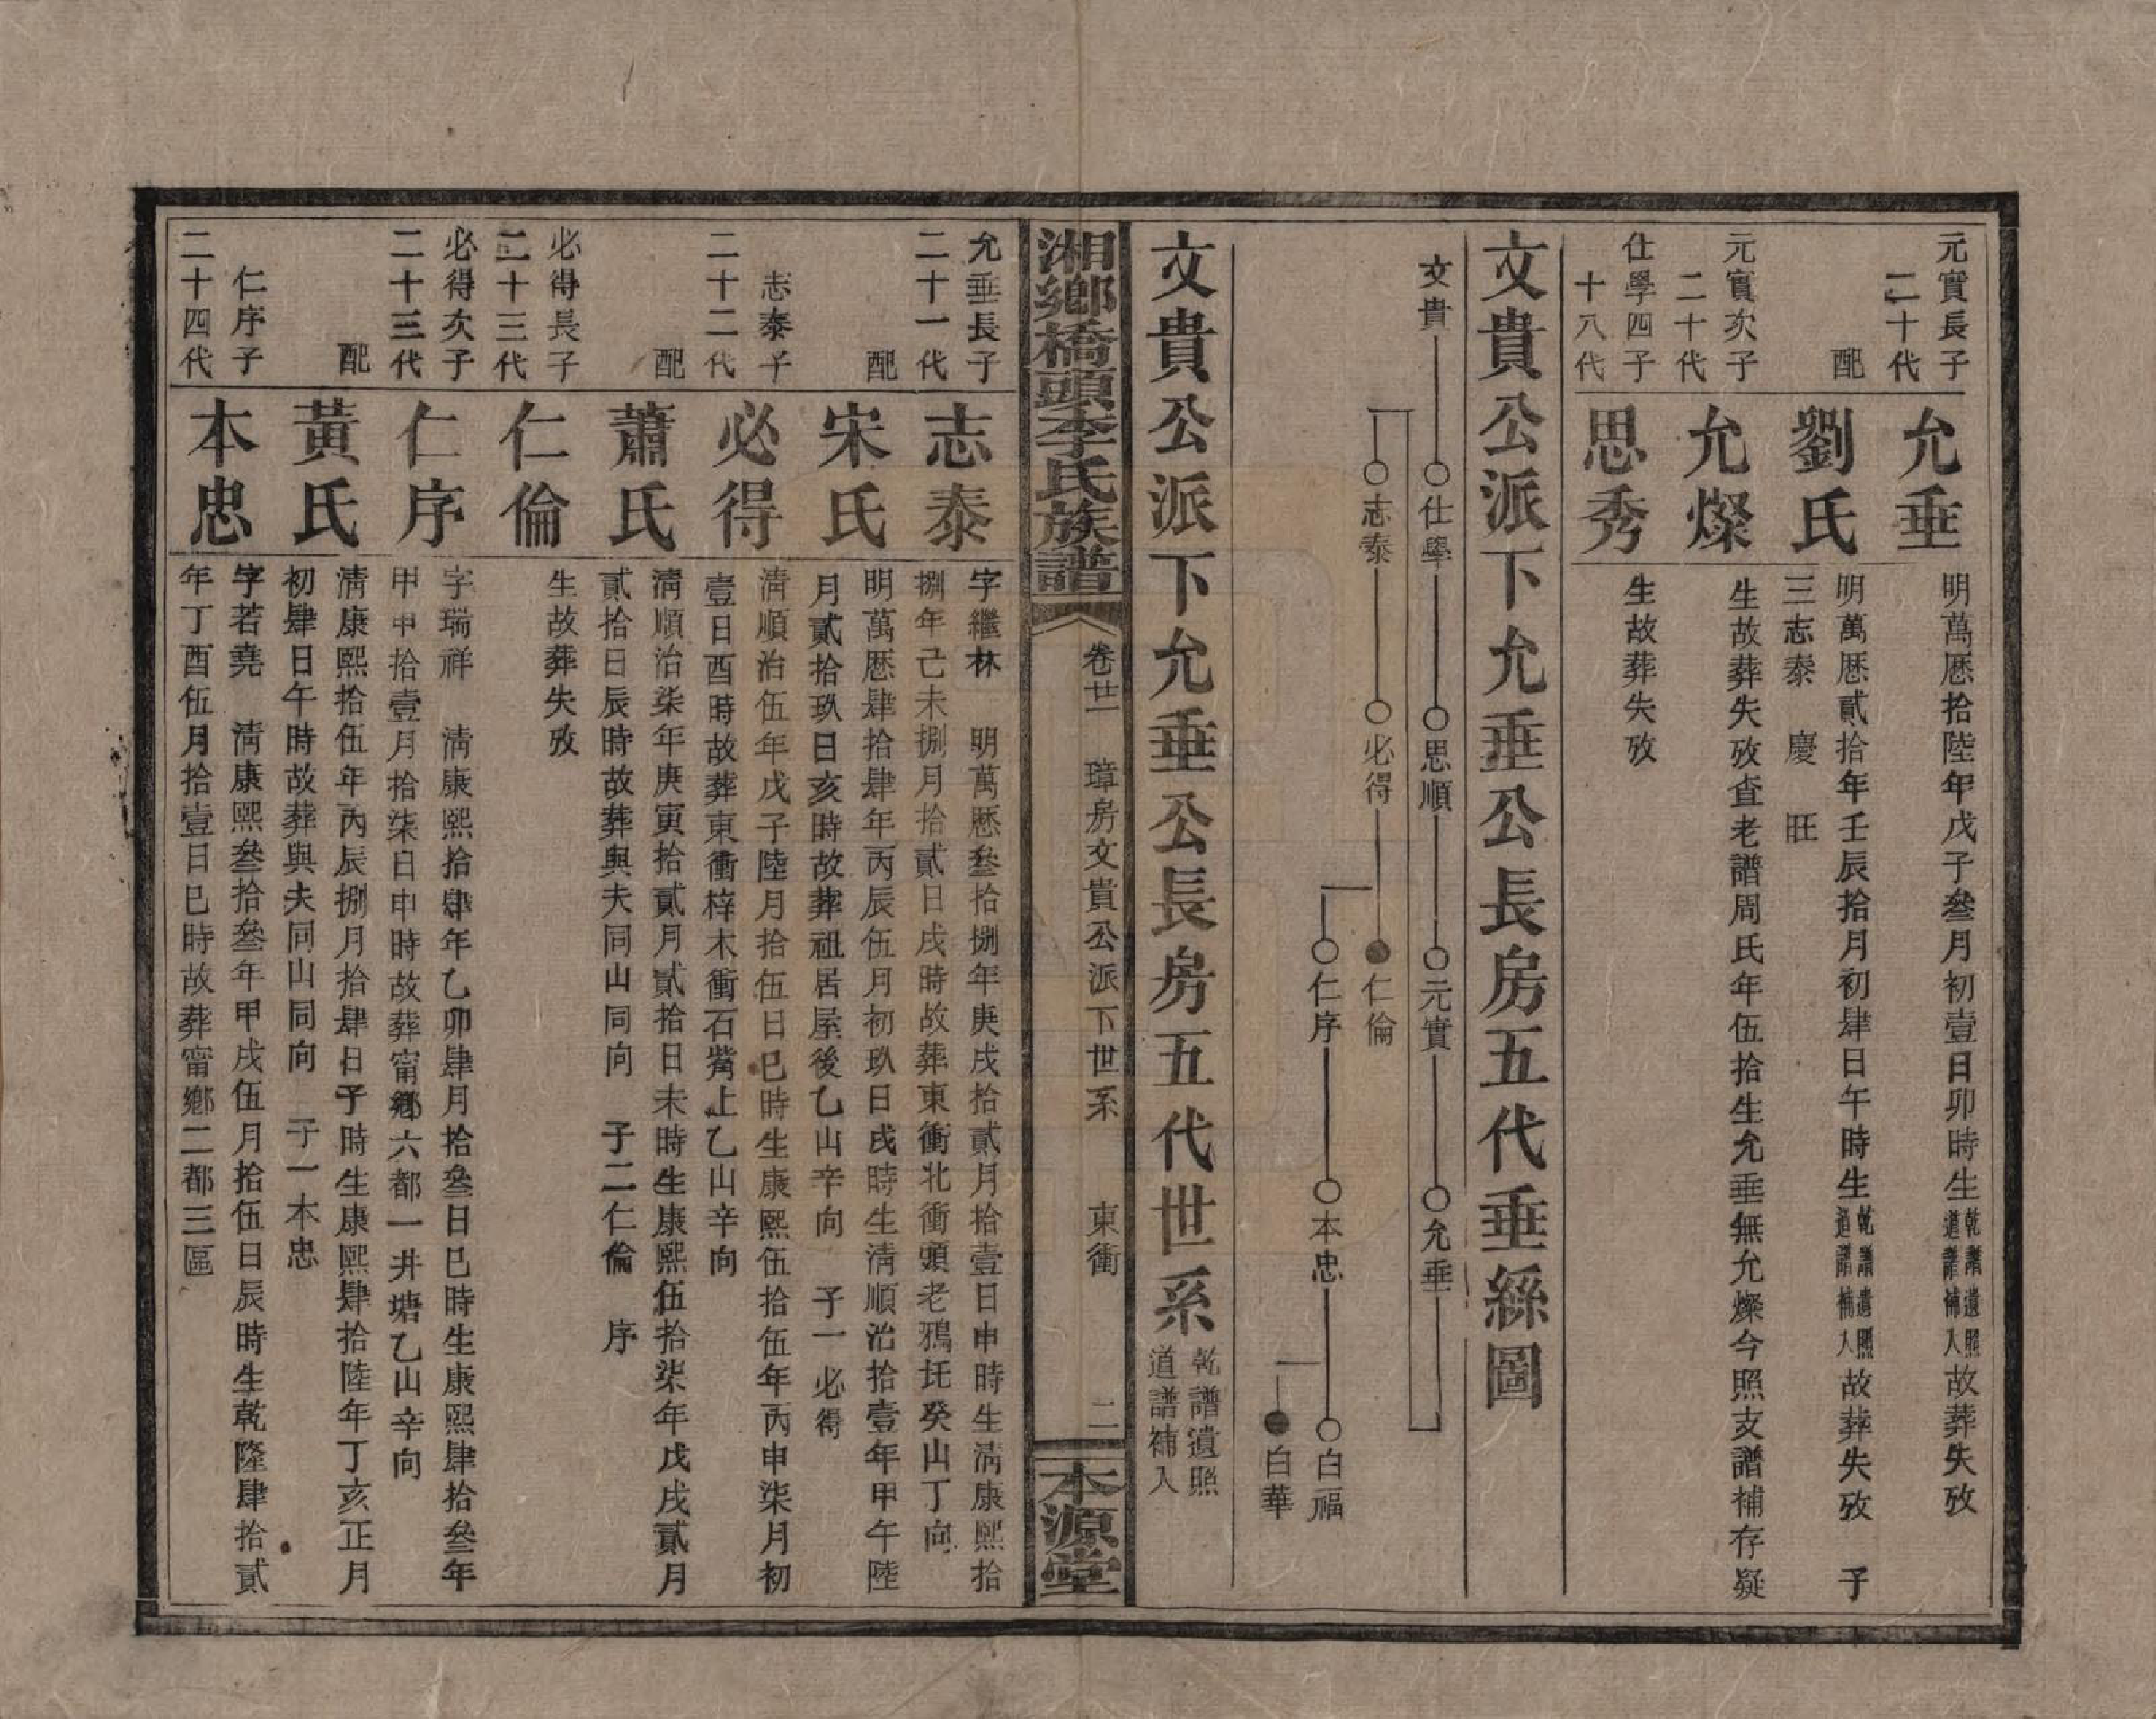 元實長子
二十代
允垂
明萬厯拾陸年戊子叄月初壹日卯時生乾譜遺照道譜補入故葬失攷
配
劉氏
明萬厯貳拾年壬辰拾月初肆日午時生乾譜遺照道譜補入故葬失攷　子
三志泰　慶　旺
元實次子
二十代
允燦
生故葬失攷查老譜周氏年伍拾生允垂無允燦今照支譜補存疑
仕學四子
十八代
思秀
生故葬失攷
文貴公派下允垂公長房五代垂絲圖
文貴　仕學　思順　元實　允垂
志泰　必得　仁倫
仁序　本忠　白福
白華
文貴公派下允垂公長房五代世系乾譜遺照道譜補入
湘鄉橋頭李氏族譜　卷廿一　璋房文貴公派下世系　東衝　二　本源堂
允垂長子
二十一代
志泰
字繼林　明萬厯叄拾捌年庚戌拾貳月拾壹日申時生清康熙拾
捌年己未捌月拾貳日戌時故葬東衝北衝頭老鴉圫癸山丁向
配
宋氏
明萬厯肆拾肆年丙辰伍月初玖日戌時生清順治拾壹年甲午陸
月貳拾玖日亥時故葬祖居屋後乙山辛向　子一必得
志泰子
二十二代
必得
清順治伍年戊子陸月拾伍日巳時生康熙伍拾伍年丙申柒月初
壹日酉時故葬東衝梓木衝石嘴上乙山辛向
配
蕭氏
清順治柒年庚寅拾貳月貳拾日未時生康熙伍拾柒年戊戌貳月
貳拾日辰時故葬與夫同山同向　子二仁倫　序
必得長子
二十三代
仁倫
生故葬失攷
必得次子
二十三代
仁序
字瑞祥　清康熙拾肆年乙卯肆月拾叄日巳時生康熙肆拾叄年
甲申拾壹月拾柒日申時故葬甯鄉六都一井塘乙山辛向
配
黃氏
清康熙拾伍年丙辰捌月拾肆日子時生康熙肆拾陸年丁亥正月
初肆日午時故葬與夫同山同向　子一本忠
仁序子
二十四代
本忠
字若堯　清康熙叄拾叄年甲戌伍月拾伍日辰時生乾隆肆拾貳
年丁酉伍月拾壹日巳時故葬甯鄉二都三區